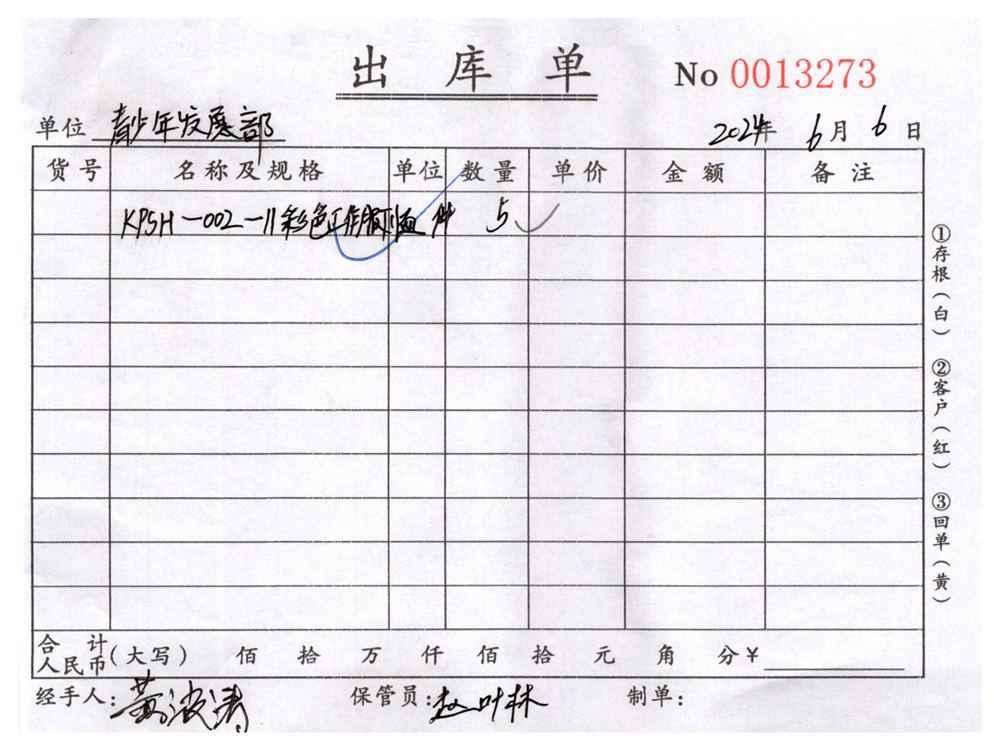 出库单 No 0013273
单位 青少年发展部 2024年 6月 6日
货号 名称及规格 单位 数量 单价 金额 备注
KPSH-002-11彩色工作服 件 5
①存根(白) ②客户(红) ③回单(黄)
合计人民币(大写) 佰 拾 万 仟 佰 拾 元 角 分¥
经手人:黄波涛 保管员:赵叶林 制单: